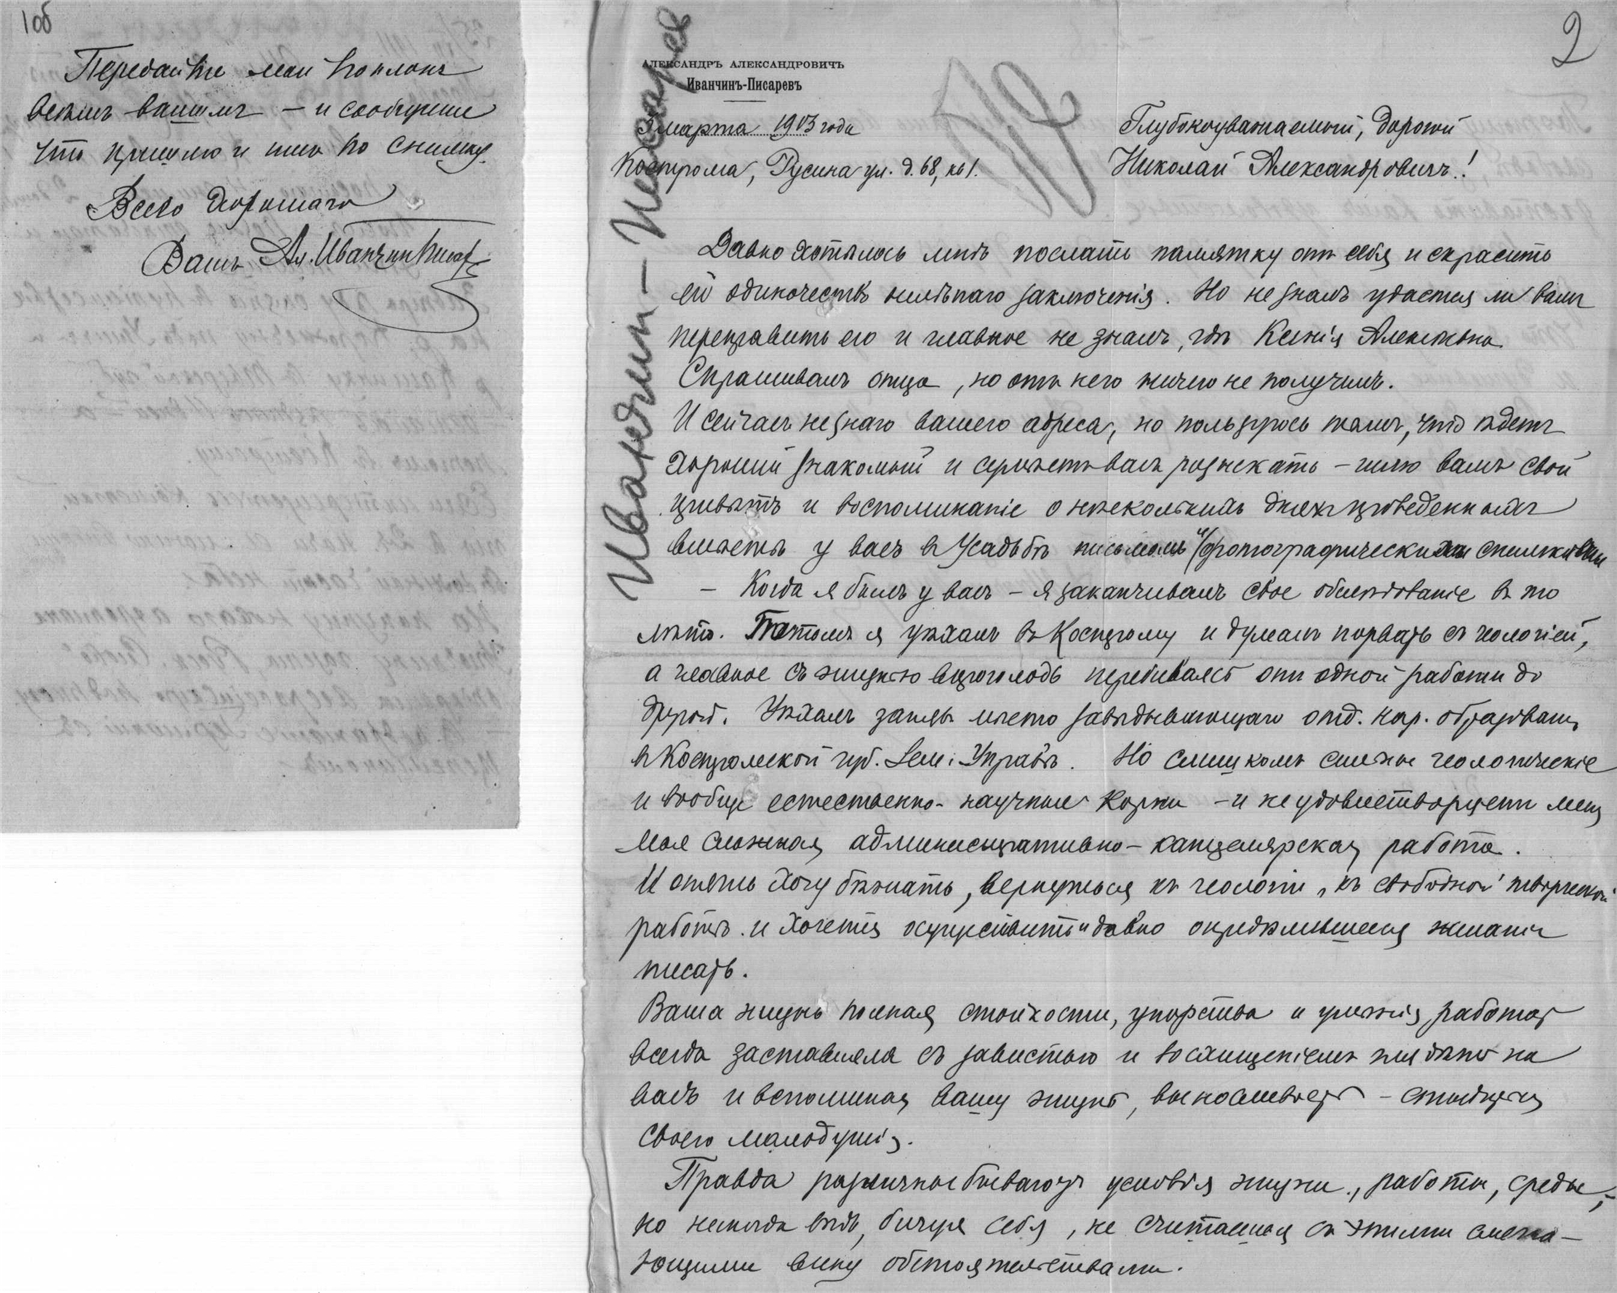 1об
Передайте мой поклонъ
всѣмъ вашимъ – и сообщите
что пришлю и имъ по снимку.
Всего хорошаго
Вашъ Ал. Иванчинъ Писар
2
Иванчин – Писарев
Александръ Александровичъ
Иванчинъ-Писаревъ
марта 1903 года
Кострома, Русина ул. д. 68, кв 1.
Глубокоуважаемый, дорогой
Николай Александровичъ!
Давно хотѣлось мнѣ послать памятку отъ себя и скрасить
ей одиночество нелѣпаго заключенія. Но не зналъ удастся ли вамъ
переправить его и главное не зналъ, гдѣ Ксенія Алексѣевна.
Спрашивалъ отца, но отъ него ничего не получилъ.
И сейчасъ не знаю вашего адреса, но пользуюсь тѣмъ, что ѣдетъ
хорошій знакомый и сумѣетъ васъ разыскать – шлю вамъ свой
привѣтъ и воспоминаніе о нѣсколькихъ дняхъ проведенныхъ
вмѣстѣ у васъ въ Усадьбѣ письмомъ и фотографическими снимками
– Когда я былъ у васъ – я заканчивалъ свое обслѣдованіе въ то
лѣто. Потомъ я уѣхалъ въ Кострому и думалъ порвать съ геологіей,
а главное съ жизнью впроголодь перебиваясь отъ одной работы до
другой. Уѣхалъ занять мѣсто завѣдывающаго отд. нар. образованія
въ Костромской губ. Зем. Управѣ. Но слишкомъ сильны геологическіе
и вообще естественно-научные корни – и не удовлетворяетъ меня
моя сложная административно-канцелярская работа.
И опять хочу бѣжать, вернуться къ геологіи, къ свободной творческой
работѣ и хочется осуществить и давно опредѣлившееся желаніе
писать.
Ваша жизнь полная стойкости, упорства и умѣнія работать
всегда заставляла съ завистью и восхищеніемъ глядѣть на
васъ и вспоминая вашу жизнь, – стыдиться
своего малодушія.
Правда различные бываютъ условія жизни, работы, среды,
но иногда вѣдь, бичуя себя, не считаешься съ этими смягча-
ющими вину обстоятельствами.